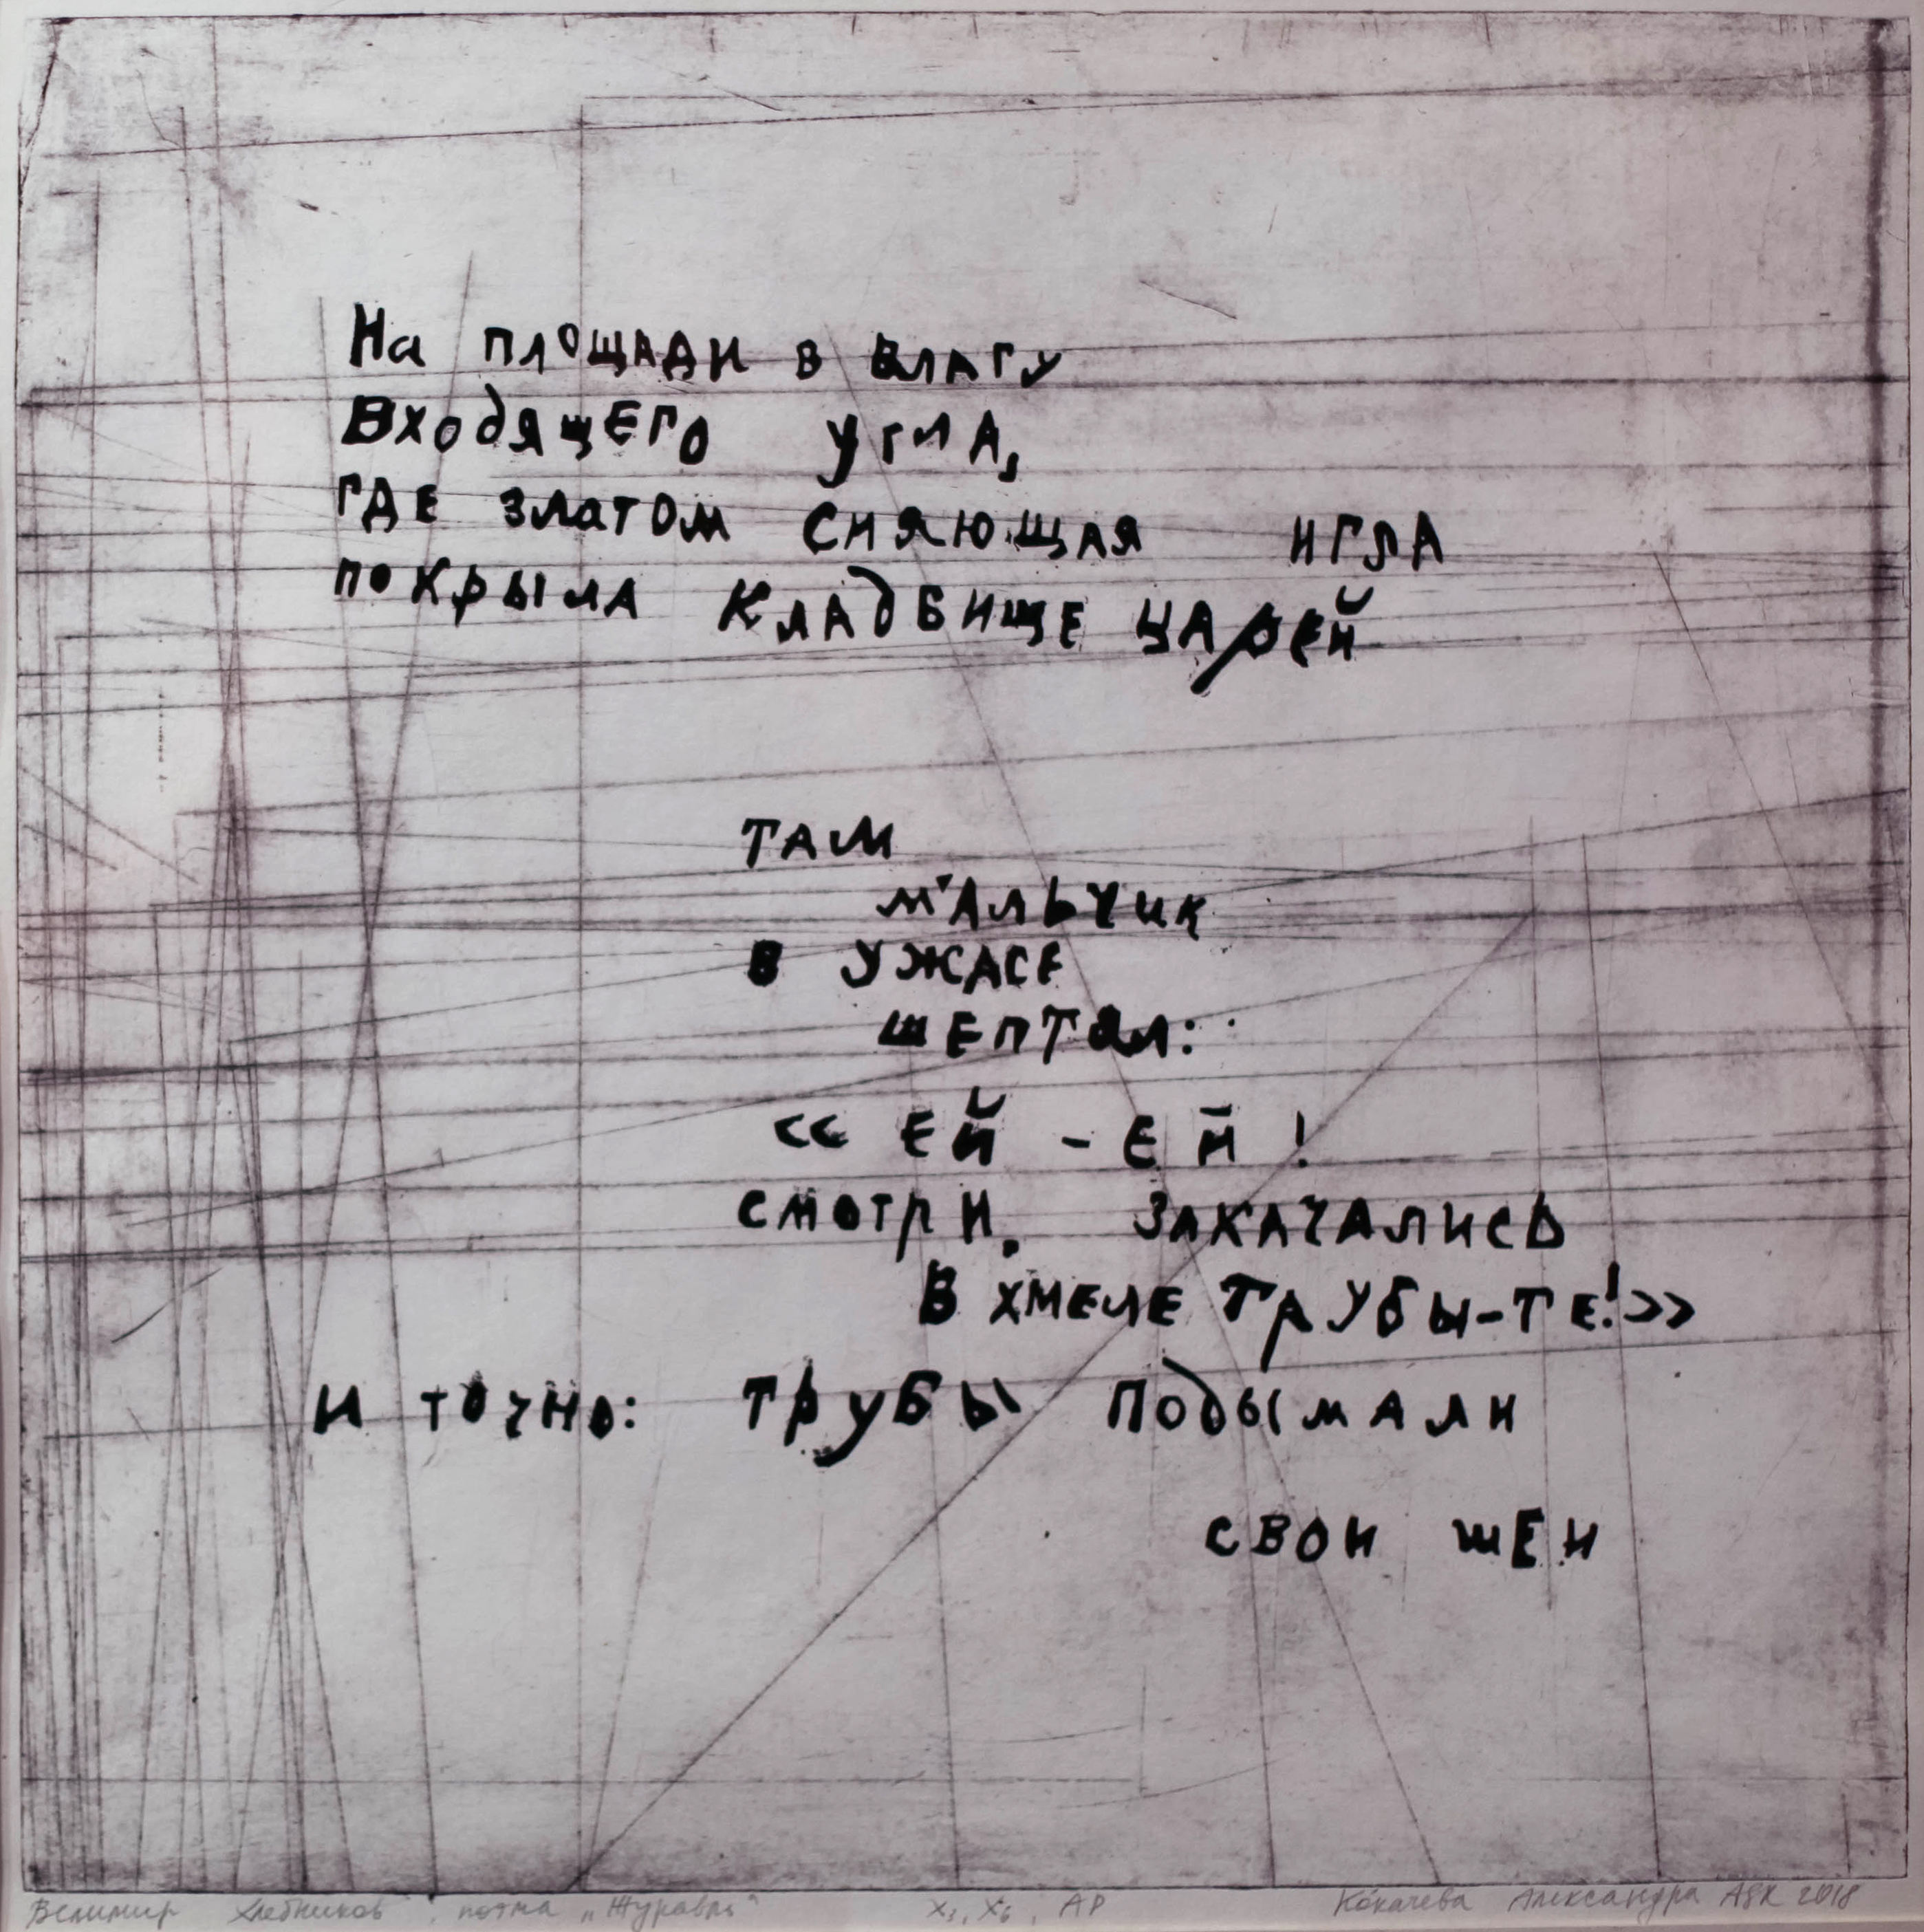 На площади в влагу
входящего угла,
где златом сияющая игла
покрыла кладбище царей
там
мальчик
в ужасе
шептал:
«ей-ей!
смотри, закачались
в хмеле трубы-те!»
и точно: трубы подымали
свои шеи
Велимир Хлебников. поэма „Журавль"
X3, X6, AP
Александра ASK 2018